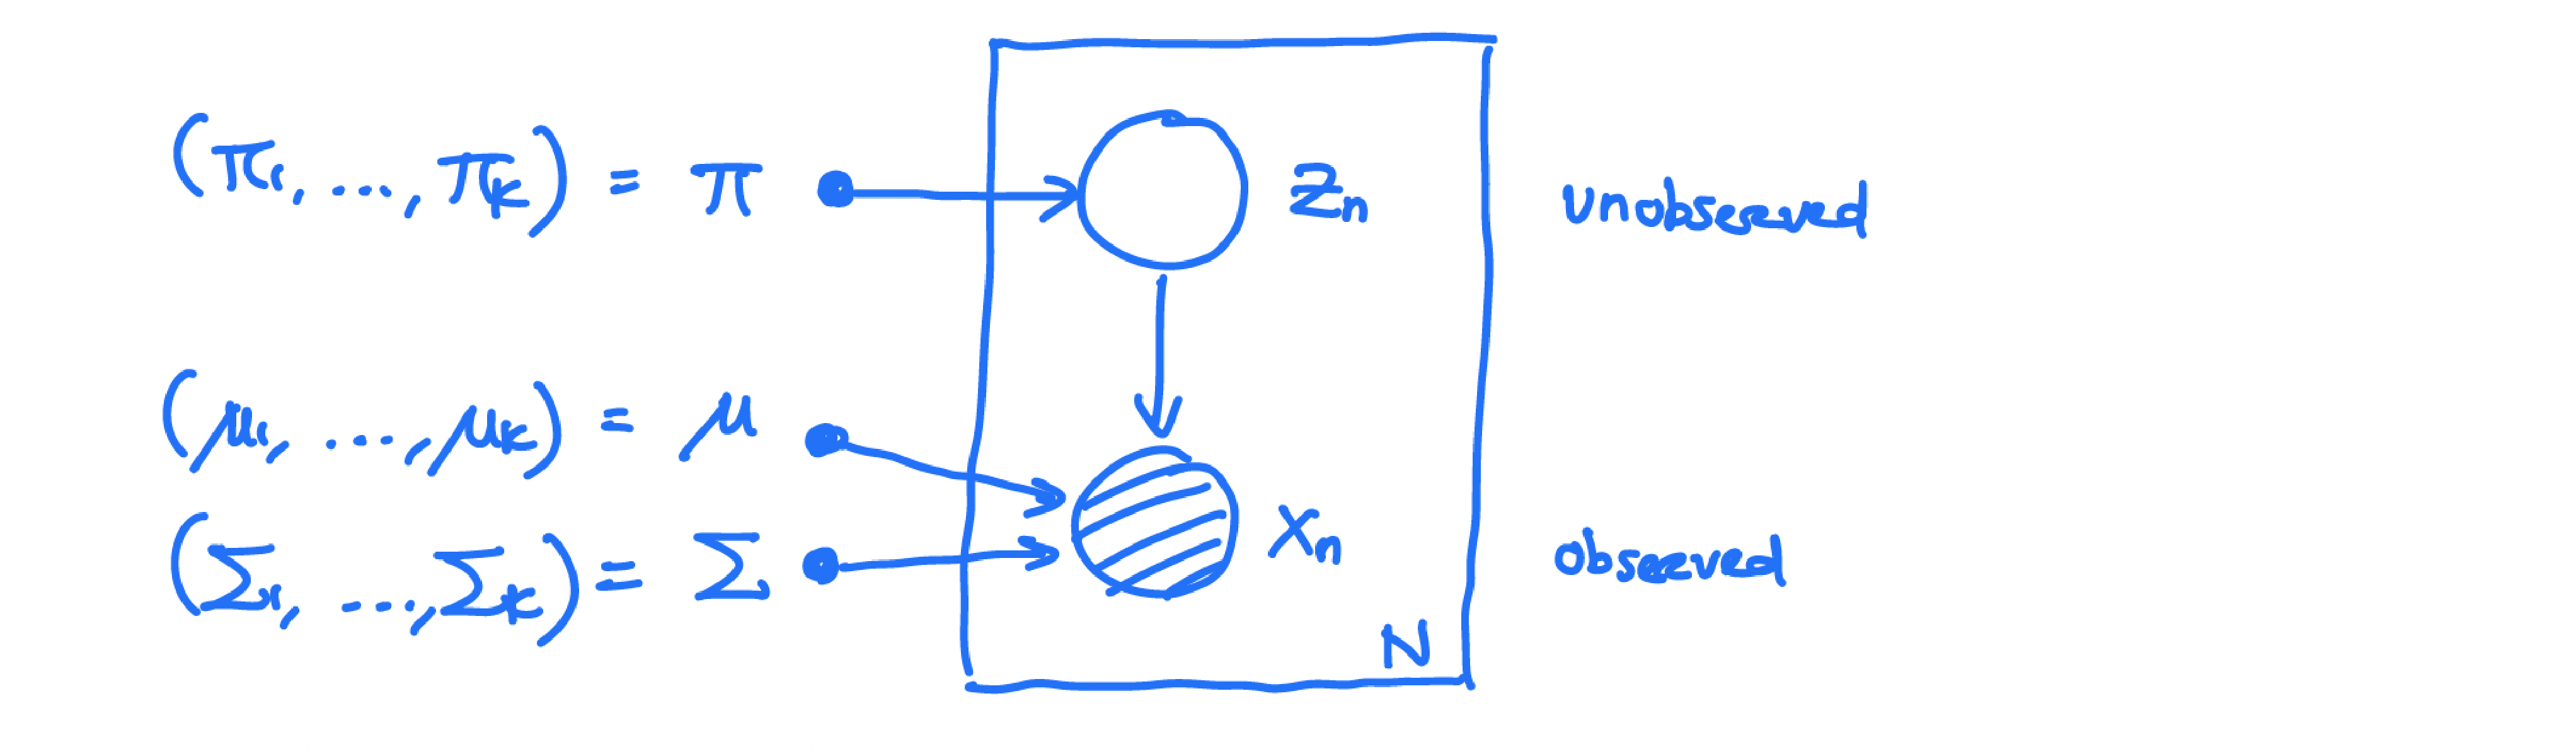 (π₁, ..., πₖ) = π zₙ unobserved
(μ₁, ..., μₖ) = μ
(Σ₁, ..., Σₖ) = Σ xₙ observed
N